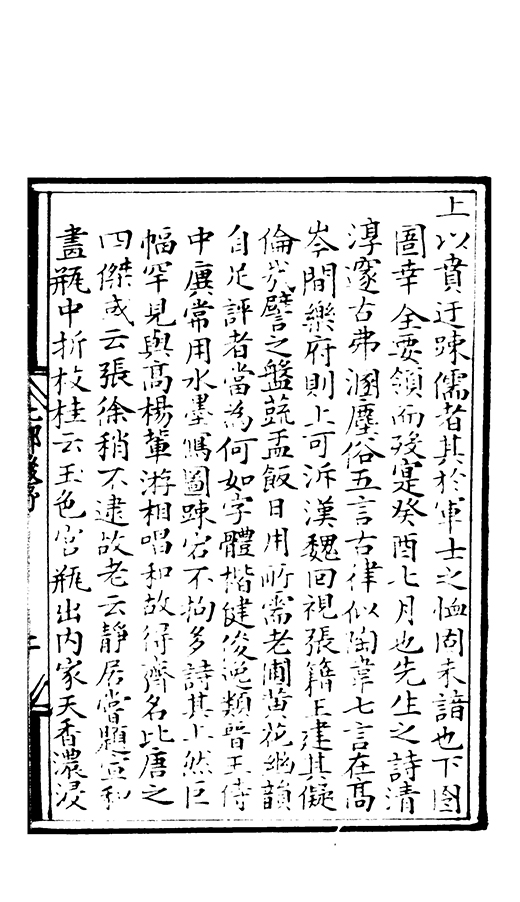 上以賁迂踈儒者其於軍士之恤固未諳也下圄
圄幸全要領而歿寔癸酉七月也先生之詩清
淳邃古弗溷塵俗五言古律似陶韋七言在高
岑間樂府則上可泝漢魏回視張籍王建其儗
倫哉譬之盤蔬盂飯日用所需老圃黃花幽韻
自足評者當為何如字體楷健俊逸類晉王侍
中廙常用水墨寫圖踈宕不拘多詩其上然巨
幅罕見與高楊輩游相唱和故得齊名比唐之
四傑或云張徐稍不逮故老云靜居嘗題宣和
畫瓶中折枝桂云玉色官瓶出內家天香濃浸